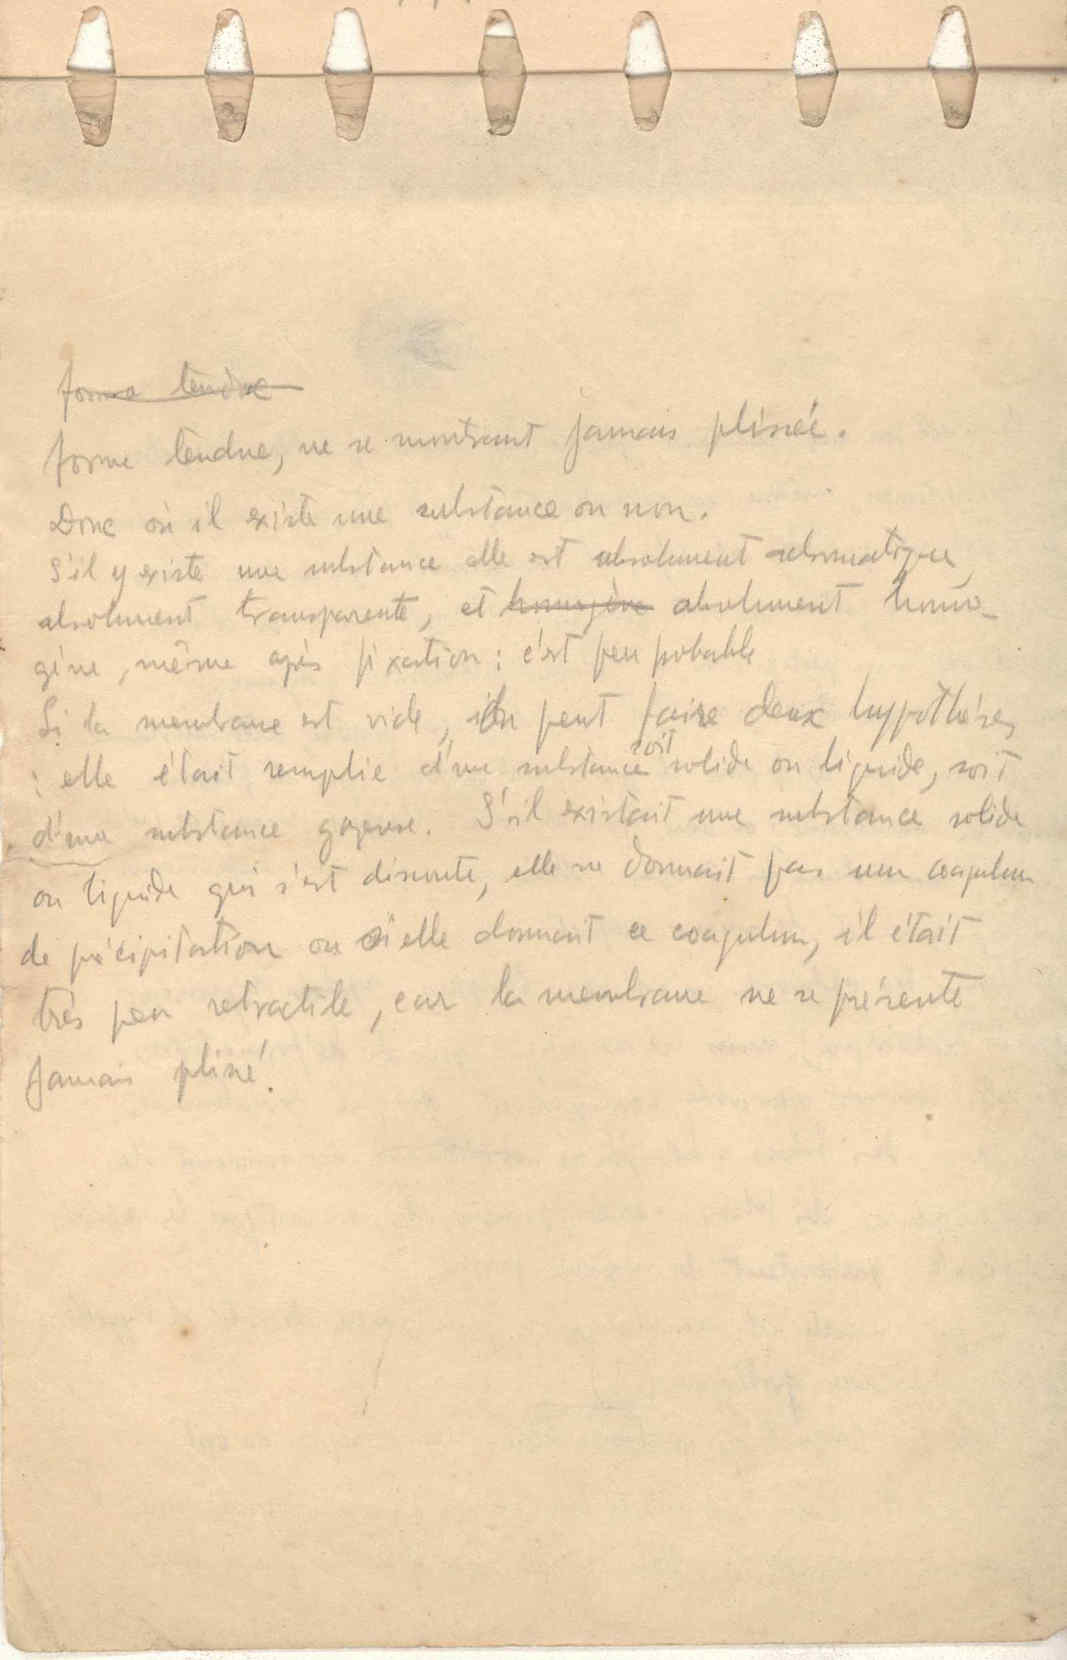 forme tendue
forme tendue, ne se montrant jamais plissée.
Donc où il existe une substance ou non.
S'il y existe une substance elle est absolument achromatique,
absolument transparente, et homogène absolument homo-
gène, même après fixation : c'est peu probable
Si la membrane est vide, on peut faire deux hypothèses
: elle était remplie d'une substance soit solide ou liquide, soit
d'une substance gazeuse. S'il existait une substance solide
ou liquide qui s'est dissoute, elle ne donnait pas un coagulum
de précipitation ou si elle donnait ce coagulum, il était
très peu retractile, car la membrane ne se présente
jamais plissé.